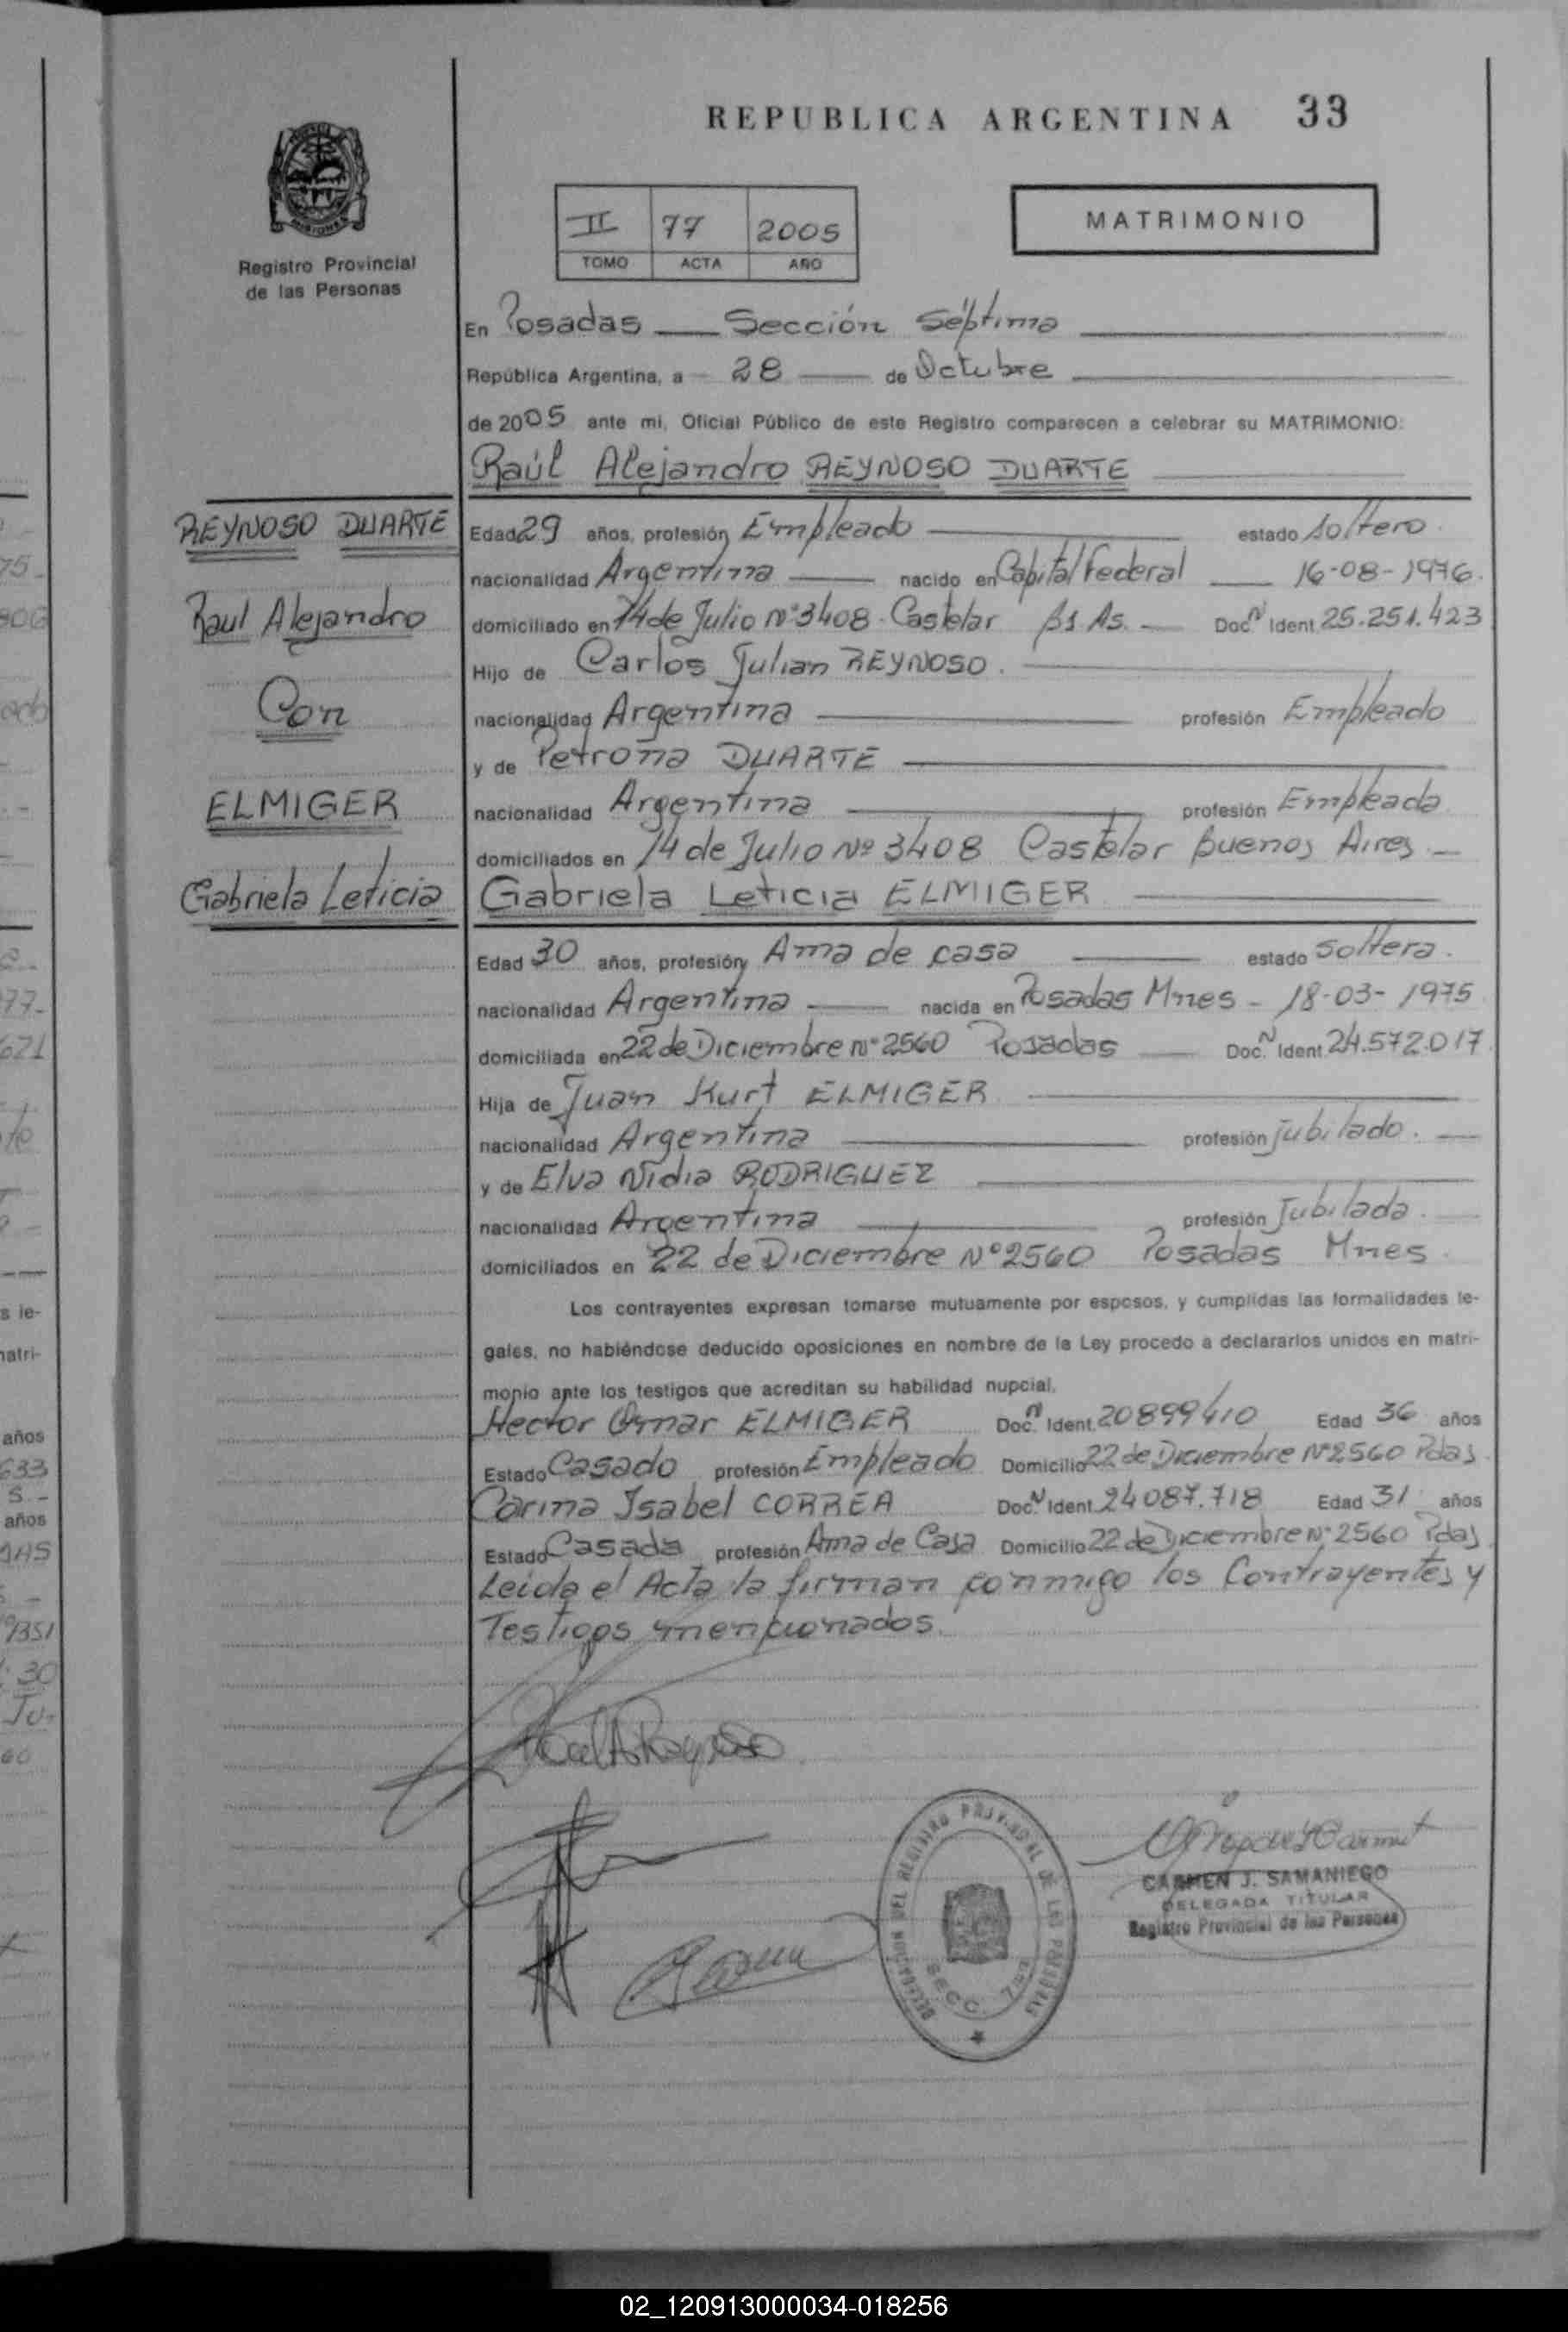 REPUBLICA ARGENTINA 33
MISIONES
Registro Provincial
de las Personas
II 77 2005
TOMO ACTA AÑO
MATRIMONIO
En Posadas Sección Séptima
República Argentina, a 28 de Octubre
de 2005 ante mi, Oficial Público de este Registro comparecen a celebrar su MATRIMONIO:
Raúl Alejandro REYNOSO DUARTE
REYNOSO DUARTE
Raul Alejandro
Con
ELMIGER
Gabriela Leticia
Edad 29 años, profesión Empleado estado soltero.
nacionalidad Argentina nacido en Capital Federal 16-08-1976.
domiciliado en 14 de Julio Nº 3408. Castelar Bs As. Doc. N Ident. 25.251.423
Hijo de Carlos Julian REYNOSO.
nacionalidad Argentina profesión Empleado
y de Petrona DUARTE
nacionalidad Argentina profesión Empleada
domiciliados en 14 de Julio Nº 3408 Castelar Buenos Aires.
Gabriela Leticia ELMIGER
Edad 30 años, profesión Ama de casa estado soltera.
nacionalidad Argentina nacida en Posadas Mnes - 18-03-1975
domiciliada en 22 de Diciembre Nº 2560 Posadas Doc. N Ident. 24.572.017
Hija de Juan Kurt ELMIGER
nacionalidad Argentina profesión jubilado.
y de Elva Nidia RODRIGUEZ
nacionalidad Argentina profesión Jubilada.
domiciliados en 22 de Diciembre Nº 2560 Posadas Mnes.
Los contrayentes expresan tomarse mutuamente por esposos, y cumplidas las formalidades le-
gales, no habiéndose deducido oposiciones en nombre de la Ley procedo a declararlos unidos en matri-
monio ante los testigos que acreditan su habilidad nupcial.
Hector Omar ELMIGER Doc. N Ident. 20899410 Edad 36 años
Estado Casado profesión Empleado Domicilio 22 de Diciembre Nº 2560 Pdas.
Carina Isabel CORREA Doc. N Ident. 24087.718 Edad 31 años
Estado Casada profesión Ama de Casa Domicilio 22 de Diciembre Nº 2560 Pdas
Leida el Acta la firman conmigo los Contrayentes y
Testigos mencionados.
SECC. 7ma
CARMEN J. SAMANIEGO
DELEGADA TITULAR
Registro Provincial de las Personas
s le-
natri-
años
633
años
02_120913000034-018256